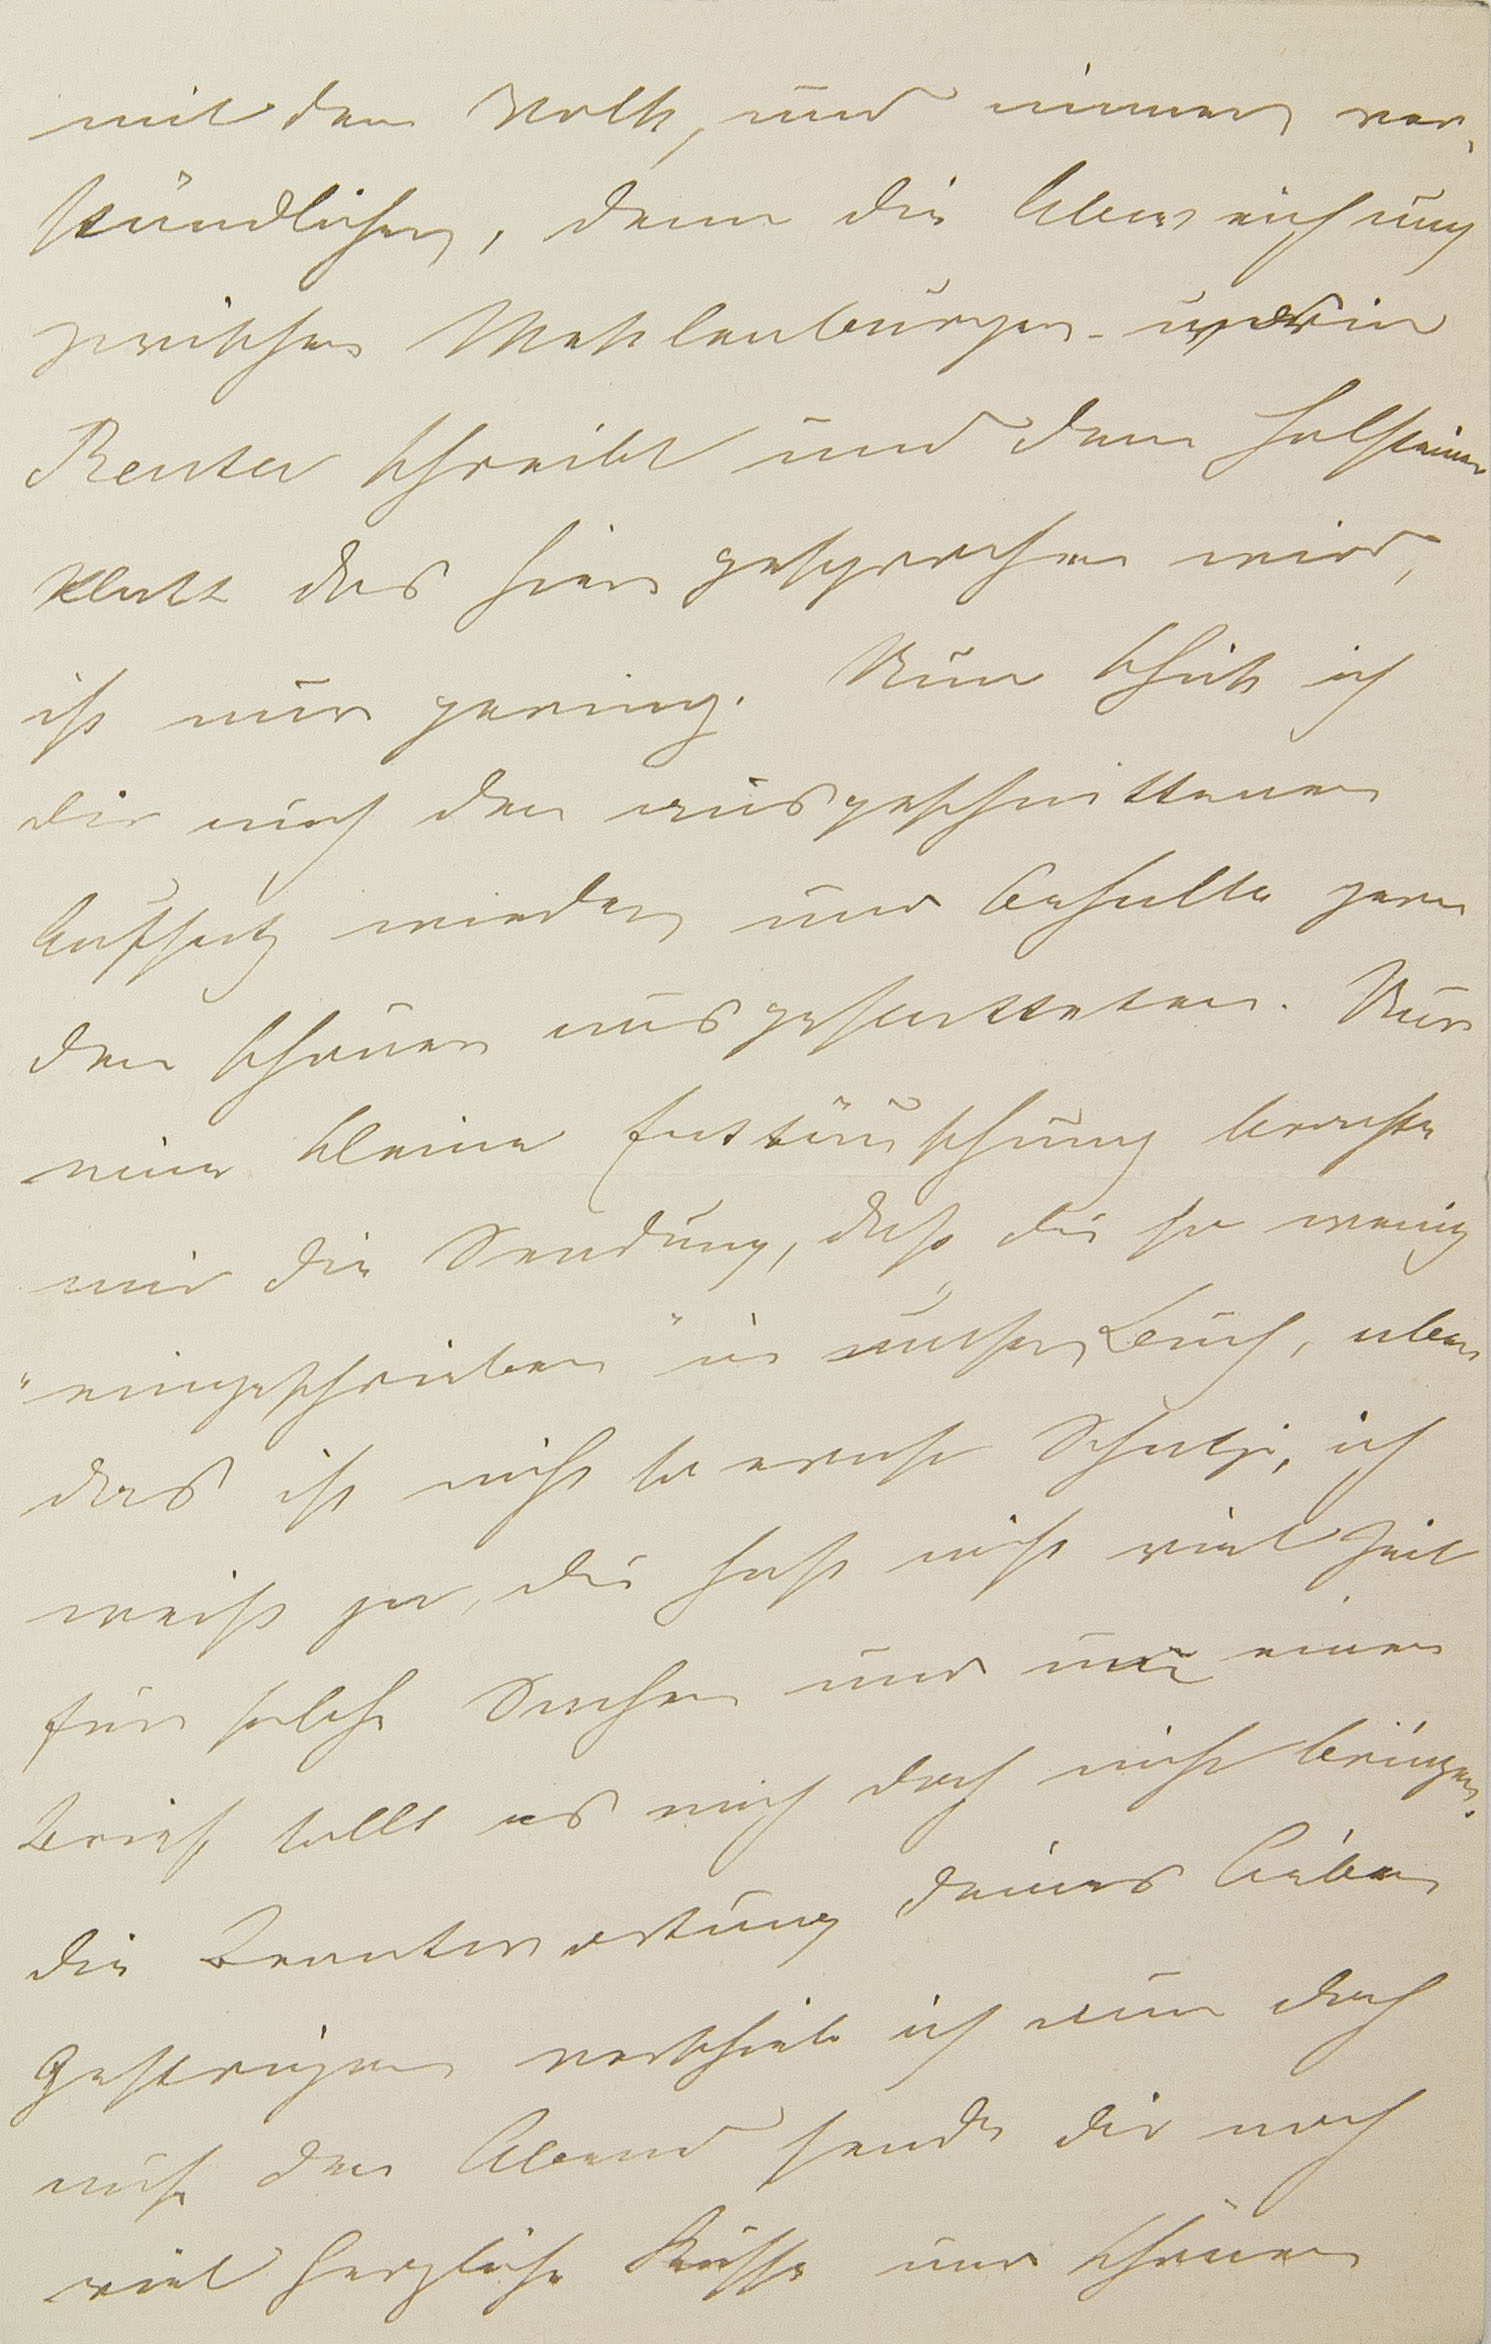 mit dem Volk, und immer ver-
ständlicher, denn die Abweichung
zwischen Mecklenburger - worin
Reuter schreibt und dem Holsteiner
Platt das hier gesprochen wird,
ist nur gering. Nun schick ich
dir auch den ausgeschnittenen
Aufsatz wieder und behalte gern
den schönen ausgestatteten. Nur
eine kleine Enttäuschung brachte
mir die Sendung, daß du so wenig
"eingeschrieben" in unser Buch, aber
das ist nicht so ernst Schatzi, ich
weiß ja, du hast nicht viel Zeit
für solche Sachen und um einen
Brief sollt es mich doch nicht bringen.
die Beantwortung deines lieben
Gestrigen verschieb ich nun doch
auf den Abend sende dir noch
viel herzliche Küsse und schönen